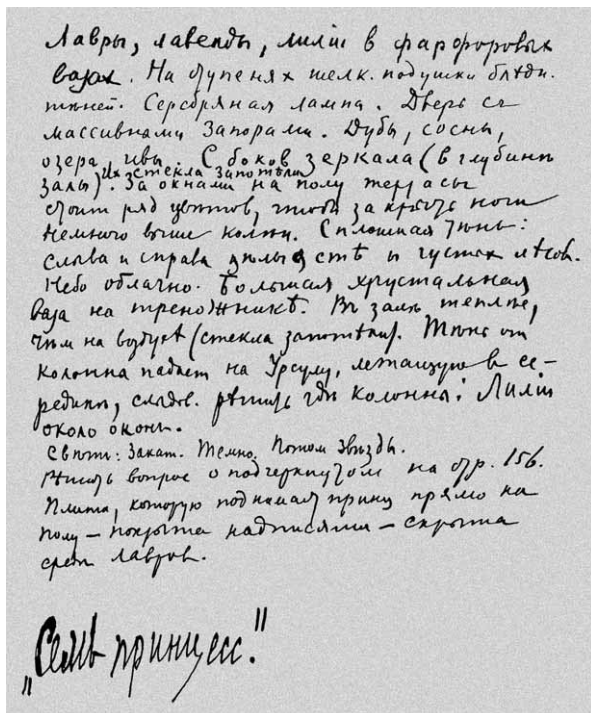 Лавры, лаванды, лилiи в фарфоровых
вазах. На ступенях шелк. подушки блѣдн.
тканей. Серебряная лампа. Дверь съ
массивными запорами. Дубы, сосны,
озера, ивы. С боков зеркала (в глубинѣ
Их стекла запотѣли
залы). За окнами на полу террасы
стоит ряд цвѣтов, чтобы закрыть ноги
немного выше колѣн. Сплошная тѣнь:
слѣва и справа густых лѣсов.
Небо облачно. Большая хрустальная
ваза на треножникѣ. Въ залѣ теплѣе,
чѣм на воздухѣ (стекла запотѣли). Тѣнь от
колонна падает на Урсулу, лежащую в се-
рединѣ, слѣдов. рѣшить гдѣ колонны: Лилiи
около окон.
Свѣт: Закат. Темно. Потом звѣзды.
Рѣшить вопрос о подчеркнутом на стр. 156.
Плита, которую поднимает принц прямо на
полу — покрыта надписями — скрыта
средь лавров.
„Семь принцесс."